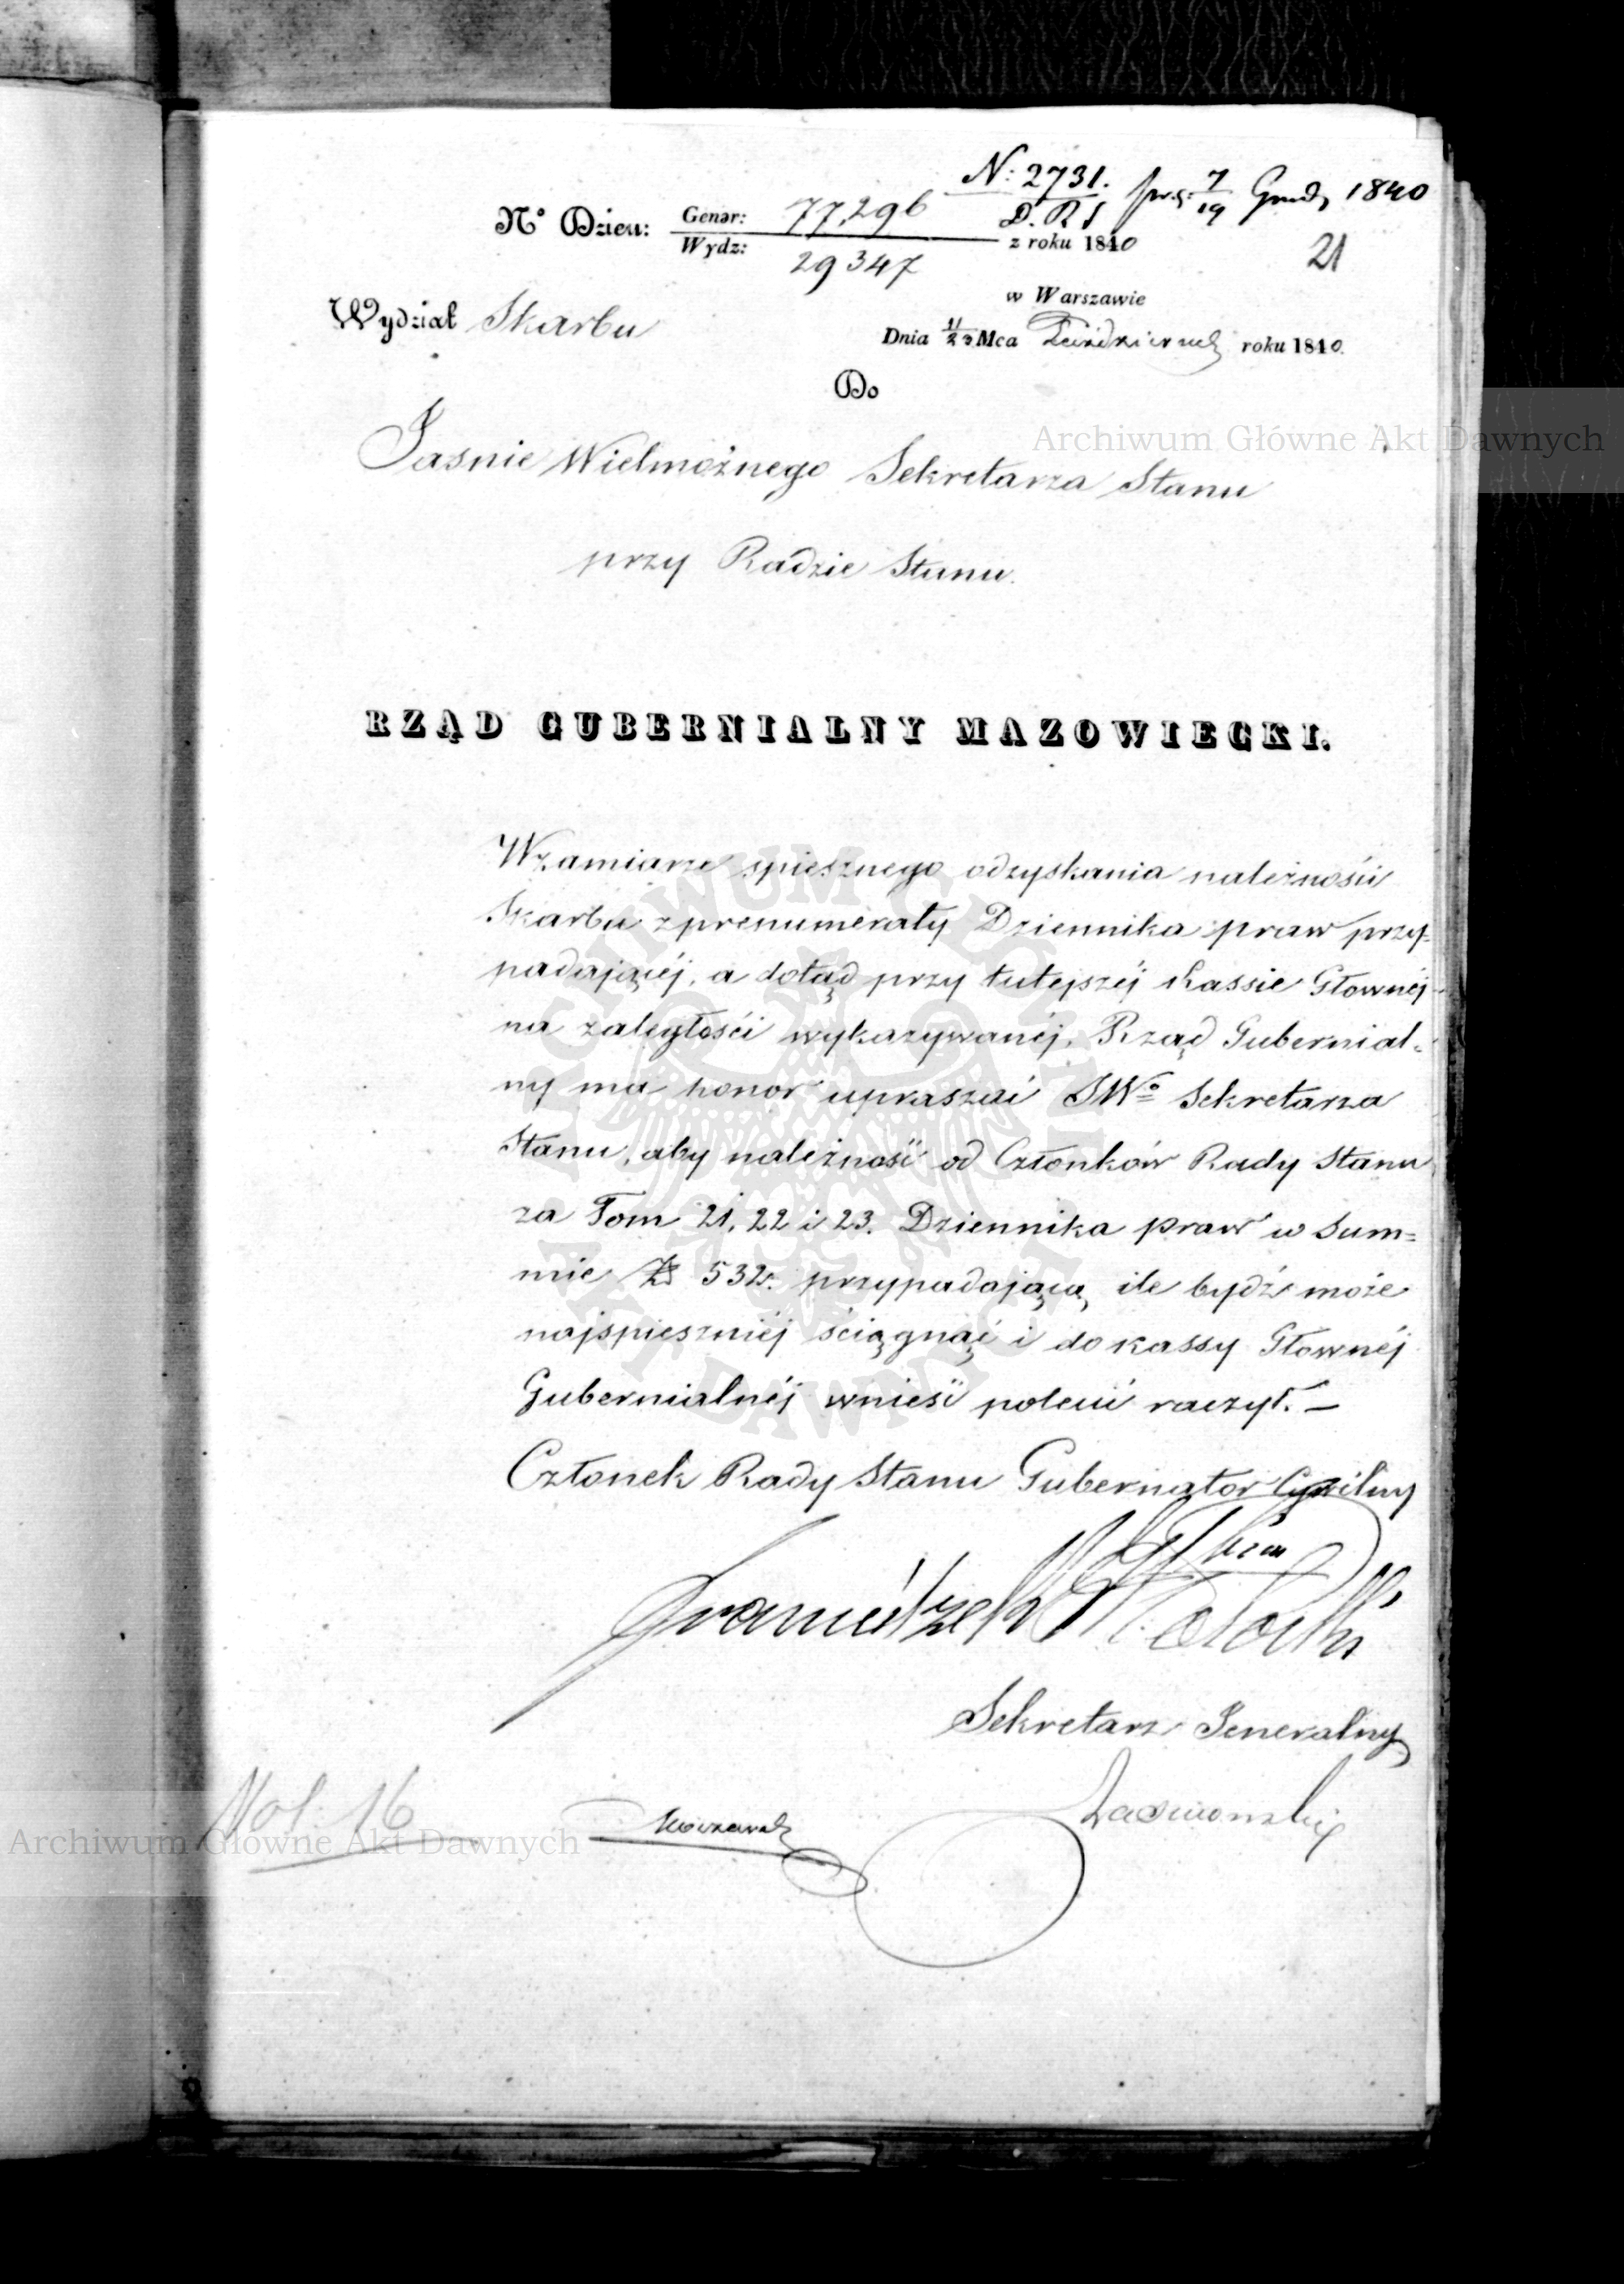 N: 2731. prs: 7/19 Grud, 1840
D. R S
No Dzien: Genər: 77,296
Wydz: 29347 z roku 1840
21
w Warszawie
Wydział Skarbu
Dnia 11/23 Mca Październik roku 1840.
Do
Jasnie Wielmożnego Sekretarza Stanu
przy Radzie Stanu.
RZĄD GUBERNIALNY MAZOWIECKI.
Wzamiarze spiesznego odzyskania należności
Skarbu zprenumeraty Dziennika praw przy-
padającéj, a dotąd przy tutejszéj Kassie Głownéj
na zaległości wykazywanéj, Rząd Gubernial-
ny ma honor upraszać JWo Sekretarza
Stanu, aby należność od Członków Rady Stanu
za Tom 21, 22 i 23. Dziennika praw w Sum=
mie Zł 532. przypadającą, ile bydź może
najspieszniéj ściągnąć i do kassy Głownéj
Gubernialnéj wnieść polecić raczył. —
Członek Rady Stanu Gubernator Cywilny
Sekretarz Jeneralny
Vol. 16
Archiwum Główne Akt Dawnych
Archiwum Główne Akt Dawnych
ARCHIWUM GŁÓWNE
AKT DAWNYCH